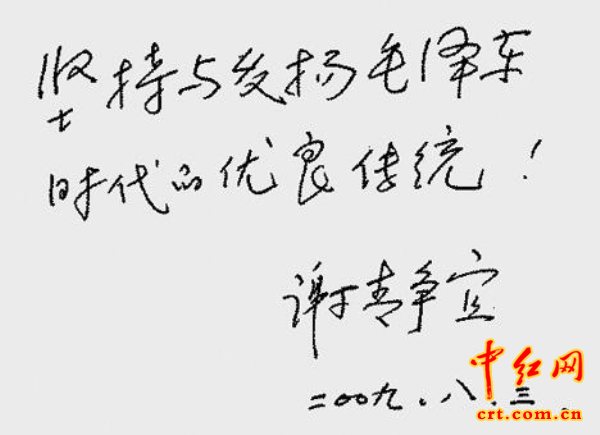 坚持与发扬毛泽东
时代的优良传统！
谢静宜
二〇〇九.八.三.
中红网
crt.com.cn